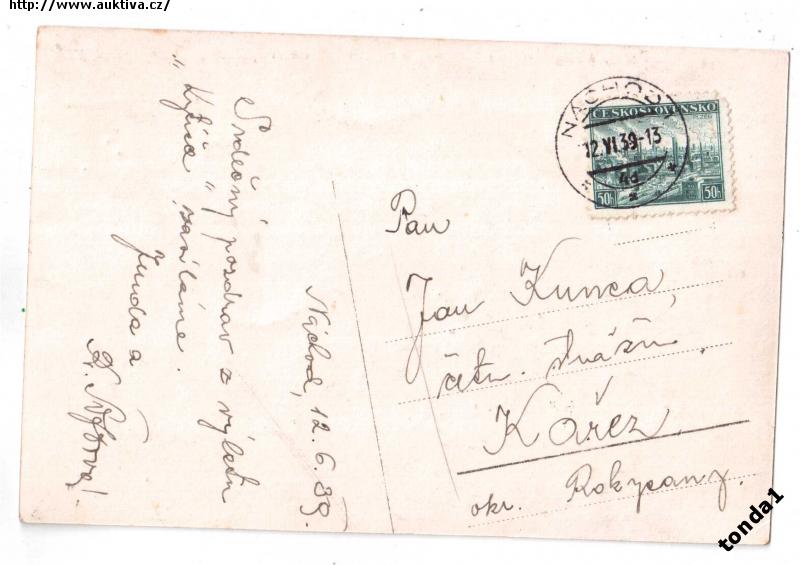 http://www.auktiva.cz/
Srdečný pozdrav z výletu
" zasíláme.
Jenda a
Náchod, 12.6.39.
NÁCHOD
ČESKOSLOVENSKO
12.VI.39-13
4d
50h 50h
Pan
Jan Kunca,
četn. strážm.
Kařez
okr. Rokycany.
tonda1